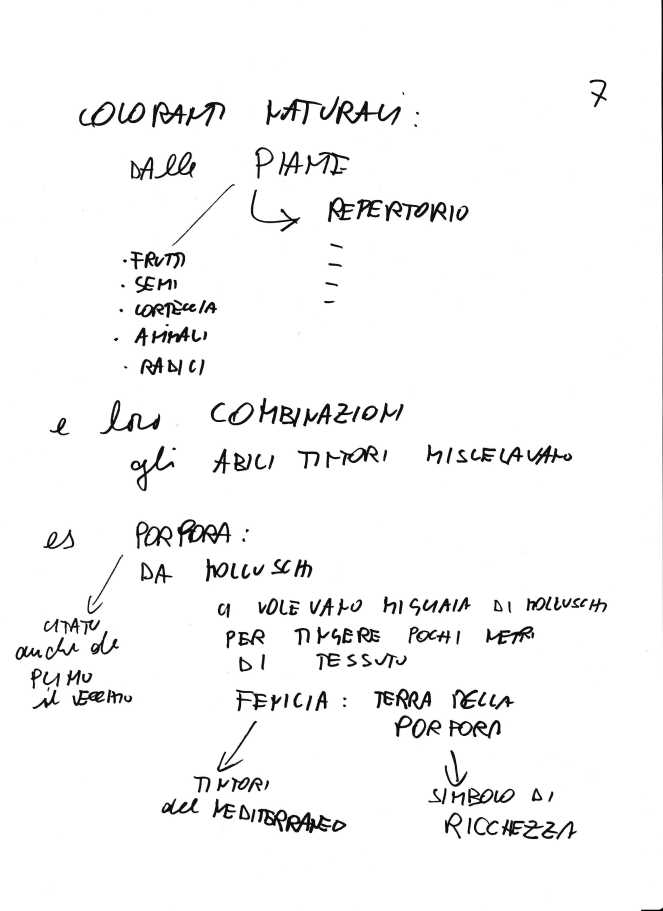 7
COLORANTI NATURALI:
DALLE PIANTE
REPERTORIO
-
-
-
-
· FRUTTI
· SEMI
· CORTECCIA
· ANIMALI
· RADICI
e loro COMBINAZIONI
gli ABILI TINTORI MISCELAVANO
es PORPORA:
DA MOLLUSCHI
CITATO
anche da
PLINIO
il VECCHIO
CI VOLEVANO MIGLIAIA DI MOLLUSCHI
PER TINGERE POCHI METRI
DI TESSUTO
FENICIA: TERRA DELLA
PORPORA
TINTORI
del MEDITERRANEO
SIMBOLO DI
RICCHEZZA